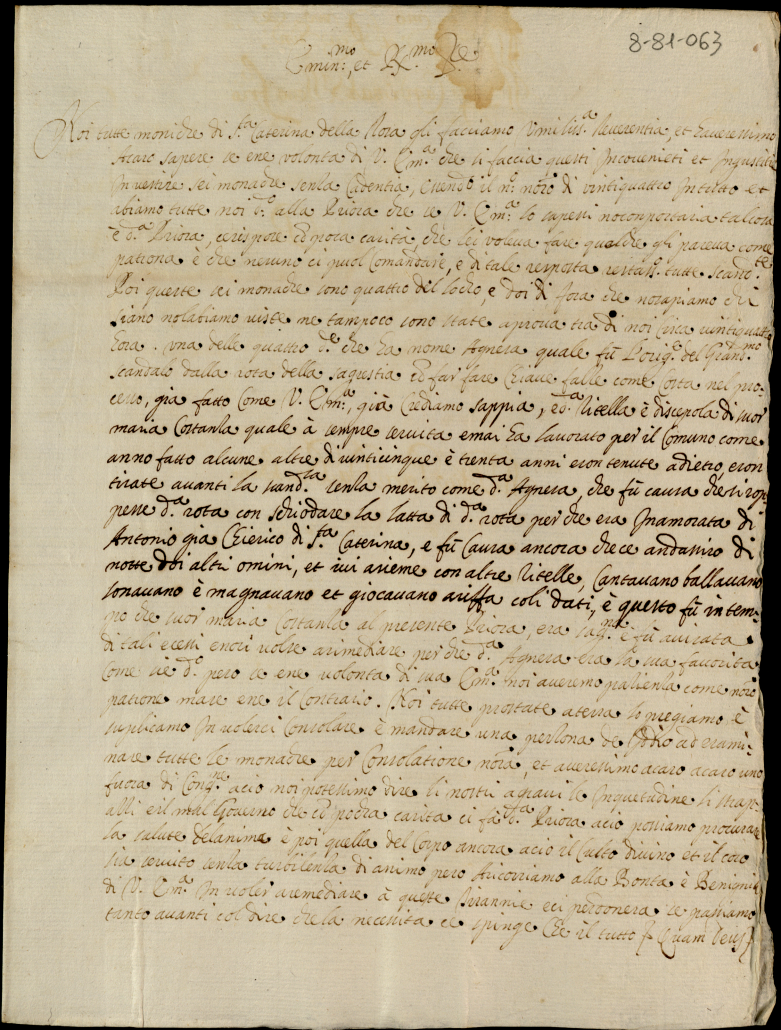 8-81-063
Emin:mo, et R.mo Sre.
Noi tutte moniche di S.ta Caterina della Rosa gli facciamo Umiliss.a Reverentia, et haveressimo
Acaro sapere se ene volonta di V. Em.a che si faccia questi Inconvenieti et Ingustitie
In vestire sei monache senza licentia, essendo il n.o nõro di vintiquattro In tutto et
abiamo tutte noi d.o alla Priora che se V. Em.a lo sapessi nocomportaria tal cosa
è d.a Priora, ce rispose cõ poca carità, che lei voleva fare quelche gli pareva come
patrona è che nesuno ci puol Comandare, e di tale resposta restass.o tutte scand.te
Poi queste sei monache sono quattro del locho, e doi di fora che nosapiamo chi
siano nolabiamo viste ne tampoco sono state aprova tra di noi circa vintiquattro
hora. Una delle quattro d.e che ha nome Agnesa quale fù l'orig.e del Grand.mo
scandalo dalla rota della sagrestia cõ far fare Chiave false come costa nel pro=
cesso, già fatto Come V. Em.a, già Crediamo sappia, e d.a Zitella è discepola di suor
maria Costanza quale à sempre servita e mai ha lavorato per il Comuno come
anno fatto alcune altre di vinticinque è trenta anni e son tenute adietro, e son
tirate avanti la senza merito come d.a Agnesa, che fù causa che si rop=
pesse d.a rota con schiodare la latta di d.a rota perche era Inamorata di
Antonio già Chierico di S.ta Caterina, e fù Causa ancora che ce andassiro di
notte doi altri omini, et ivi asieme con altre Zitelle, Cantavano ballavano
sonavano è magnavano et giocavano ariffa coli dati, è questo fù in tem=
po che suor maria Costanza al presente Priora, era è fù avisata
di tali ecessi enon volse arimediare perche d.a Agnesa era la sua favorita
Come sie d.o pero se ene volonta di sua Em.a noi averemo patienza come nõro
patrone mase ene il Contrario. Noi tutte prostate aterra lo pregiamo è
suplicamo In volerci Consolare è mandare una persona de Iddio ad esami=
nare tutte le monache per Consolatione nõra, et averessimo acaro acaro uno
fuora di Cong.ne acio noi potessimo dire li nostri agravi le Inquetudine li strap=
azzi e il mal Governo che cõ pocha carita ci fa d.a Priora acio possiamo procurare
la salute delanima è poi quella del Corpo ancora acio il Culto divino et il coro
sia servito senza turbilenza di animo pero Aricorriamo alla Bonta è Benignità
di V. Em.a In voler aremediare à queste Tirannie e ci perdonera se passiamo
tanto avanti col dire che la necessita ce spinge Che il tutto Quam Deus